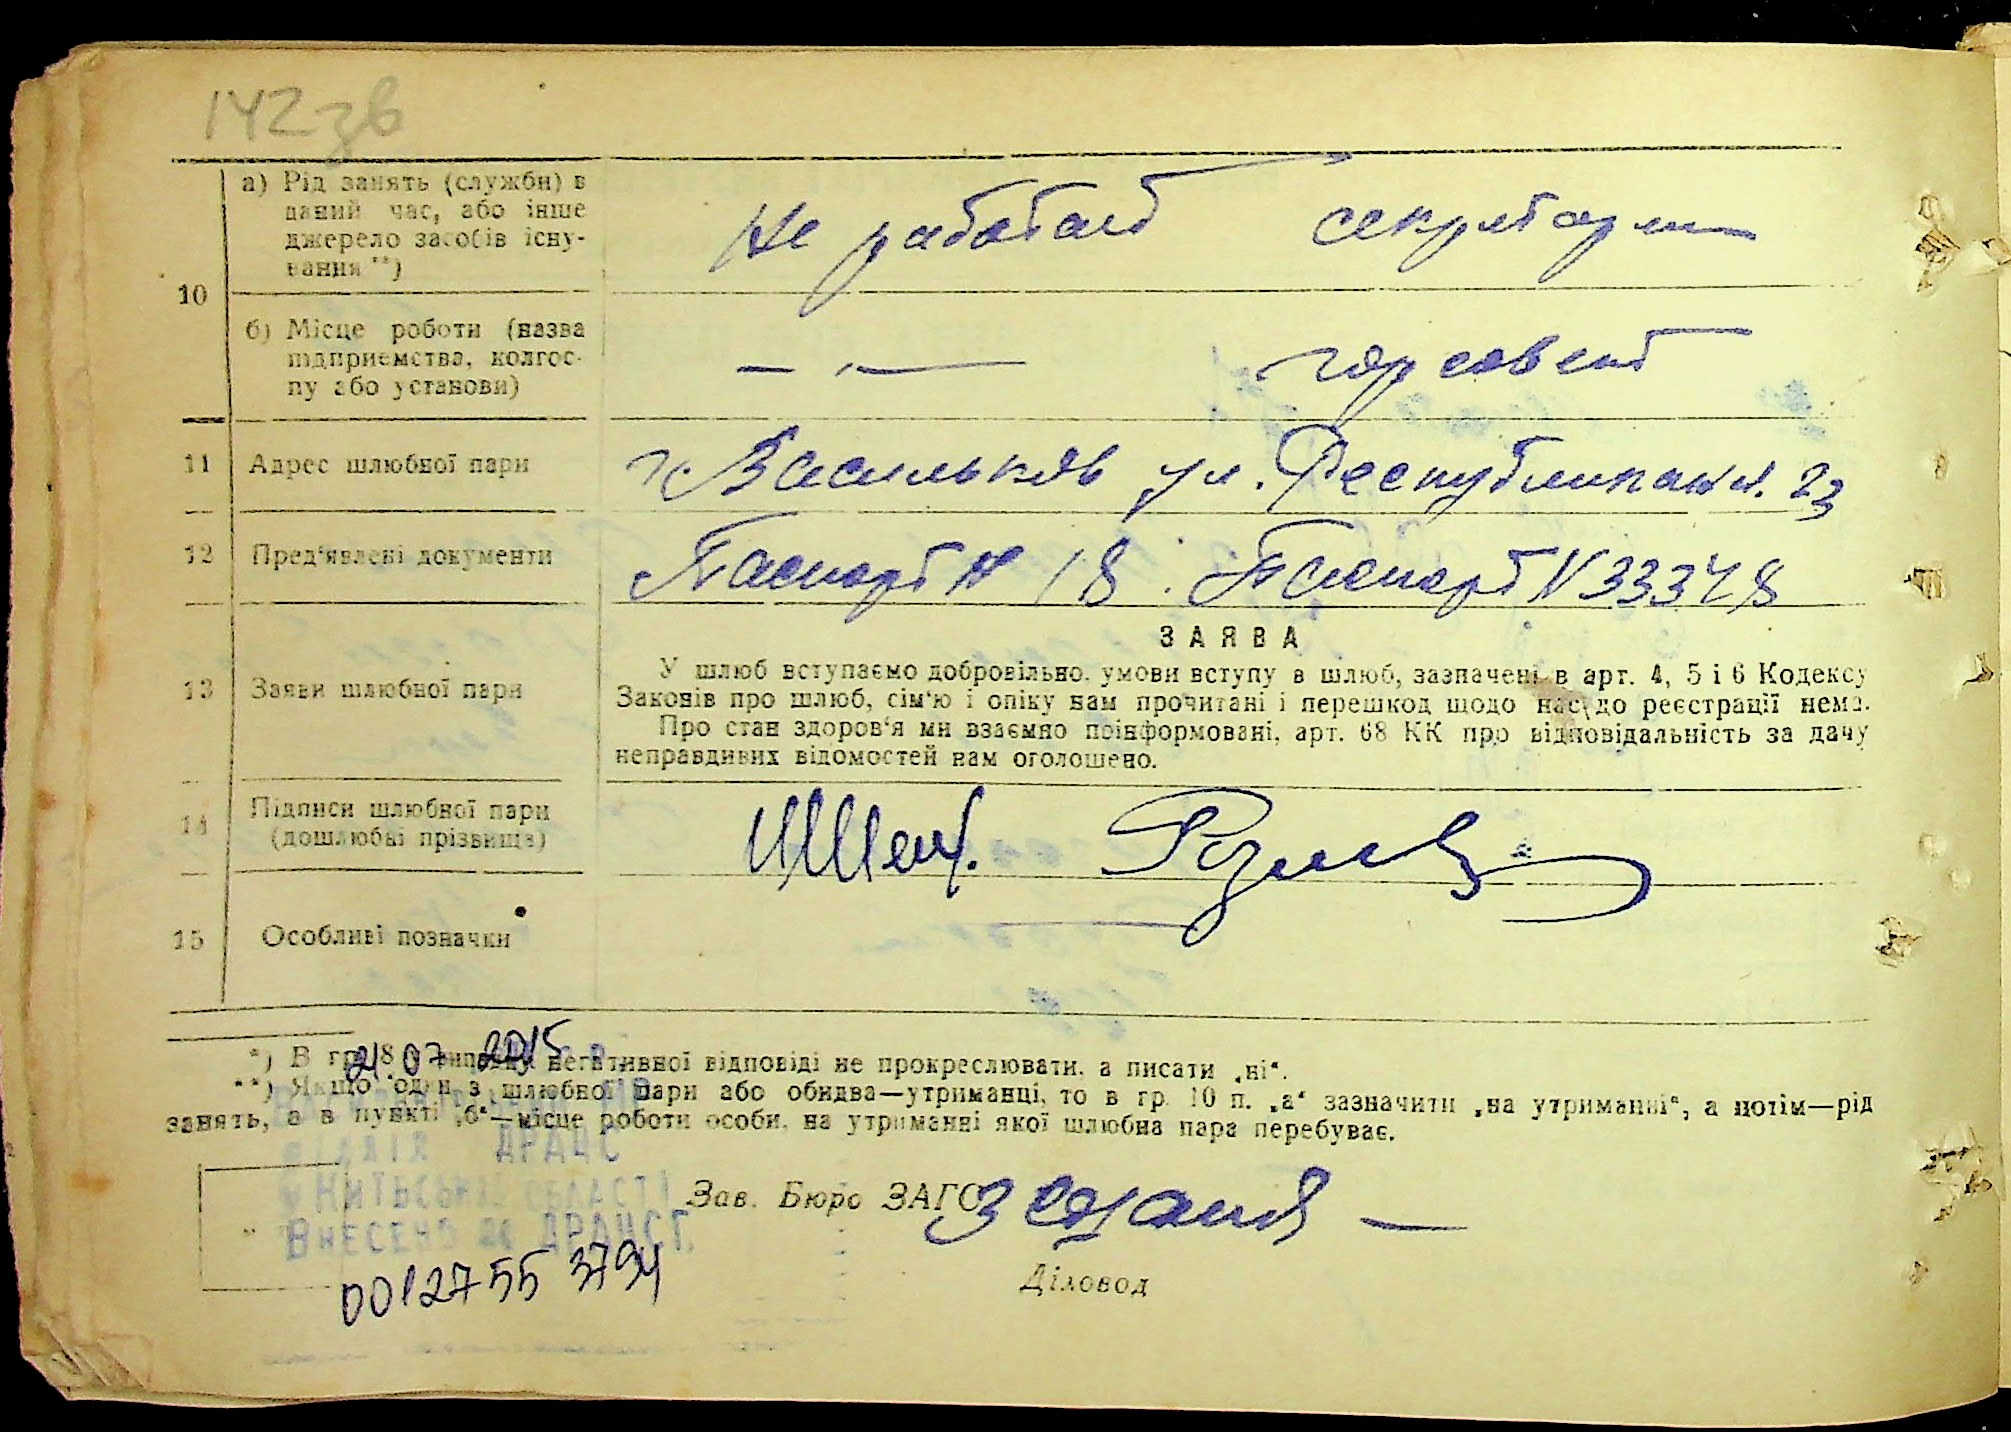 142 зв
а) Рід занять (служби) в
даний час, або інше
джерело засобів існу-
вання **)
Не работает секретарь
10
б) Місце роботи (назва
підприємства, колгос-
пу або установи)
— " — горсовет
11 Адрес шлюбної пари г. Васильков ул. 23
12 Пред'явлені документи Паспорт № 18. Паспорт № 333748
ЗАЯВА
13 Заяви шлюбної пари
У шлюб вступаємо добровільно, умови вступу в шлюб, зазначені в арт. 4, 5 і 6 Кодексу
Законів про шлюб, сім'ю і опіку нам прочитані і перешкод щодо нас до реєстрації нема.
Про стан здоров'я ми взаємно поінформовані, арт. 68 КК про відповідальність за дачу
неправдивих відомостей нам оголошено.
14 Підписи шлюбної пари
(дошлюбні прізвища)
15 Особливі позначки
21 07 2015
*) В гр. 8 у випадку негативної відповіді не прокреслювати, а писати „ні“.
**) Якщо один з шлюбної пари або обидва—утриманці, то в гр. 10 п. „а“ зазначити „на утриманні“, а потім—рід
занять, а в пункті „б“—місце роботи особи, на утриманні якої шлюбна пара перебуває.
ДРАЦС
ОБЛАСТІ
Внесено до ДРАЦСГ.
Зав. Бюро ЗАГС
00127553794
Діловод